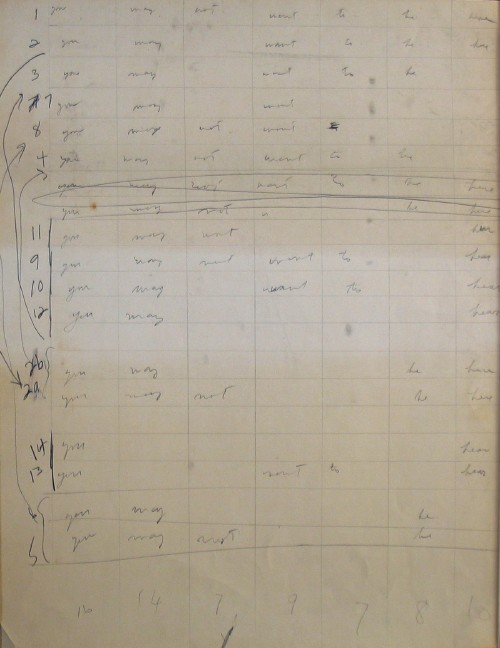 1 you may not want to be here
2 you may want to be here
3 you may want to be
7 you may want
8 you may not want
4 you may not want to be
you may not want to be here
you may not be here
11 you may want hear
9 you may not want to hear
10 you may want to hear
12 you may hear
2b you may be here
2a you may not be here
14 you hear
13 you want to hear
you may be
5 you may not be
14 7 9 7 8